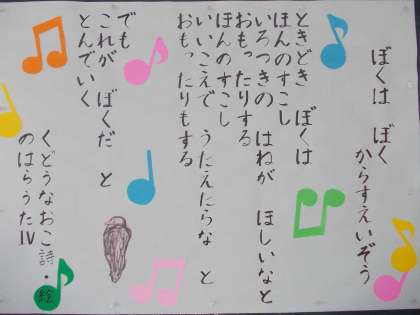 ぼくは ぼく
からすえいぞう
ときどき ぼくは
ほんのすこし
いろつきの はねが ほしいなと
おもったりする
ほんのすこし
いいこえで うたえたらな と
おもったりもする
でも
これが ぼくだ と
とんでいく
くどうなおこ詩・絵
のはらうたⅣ